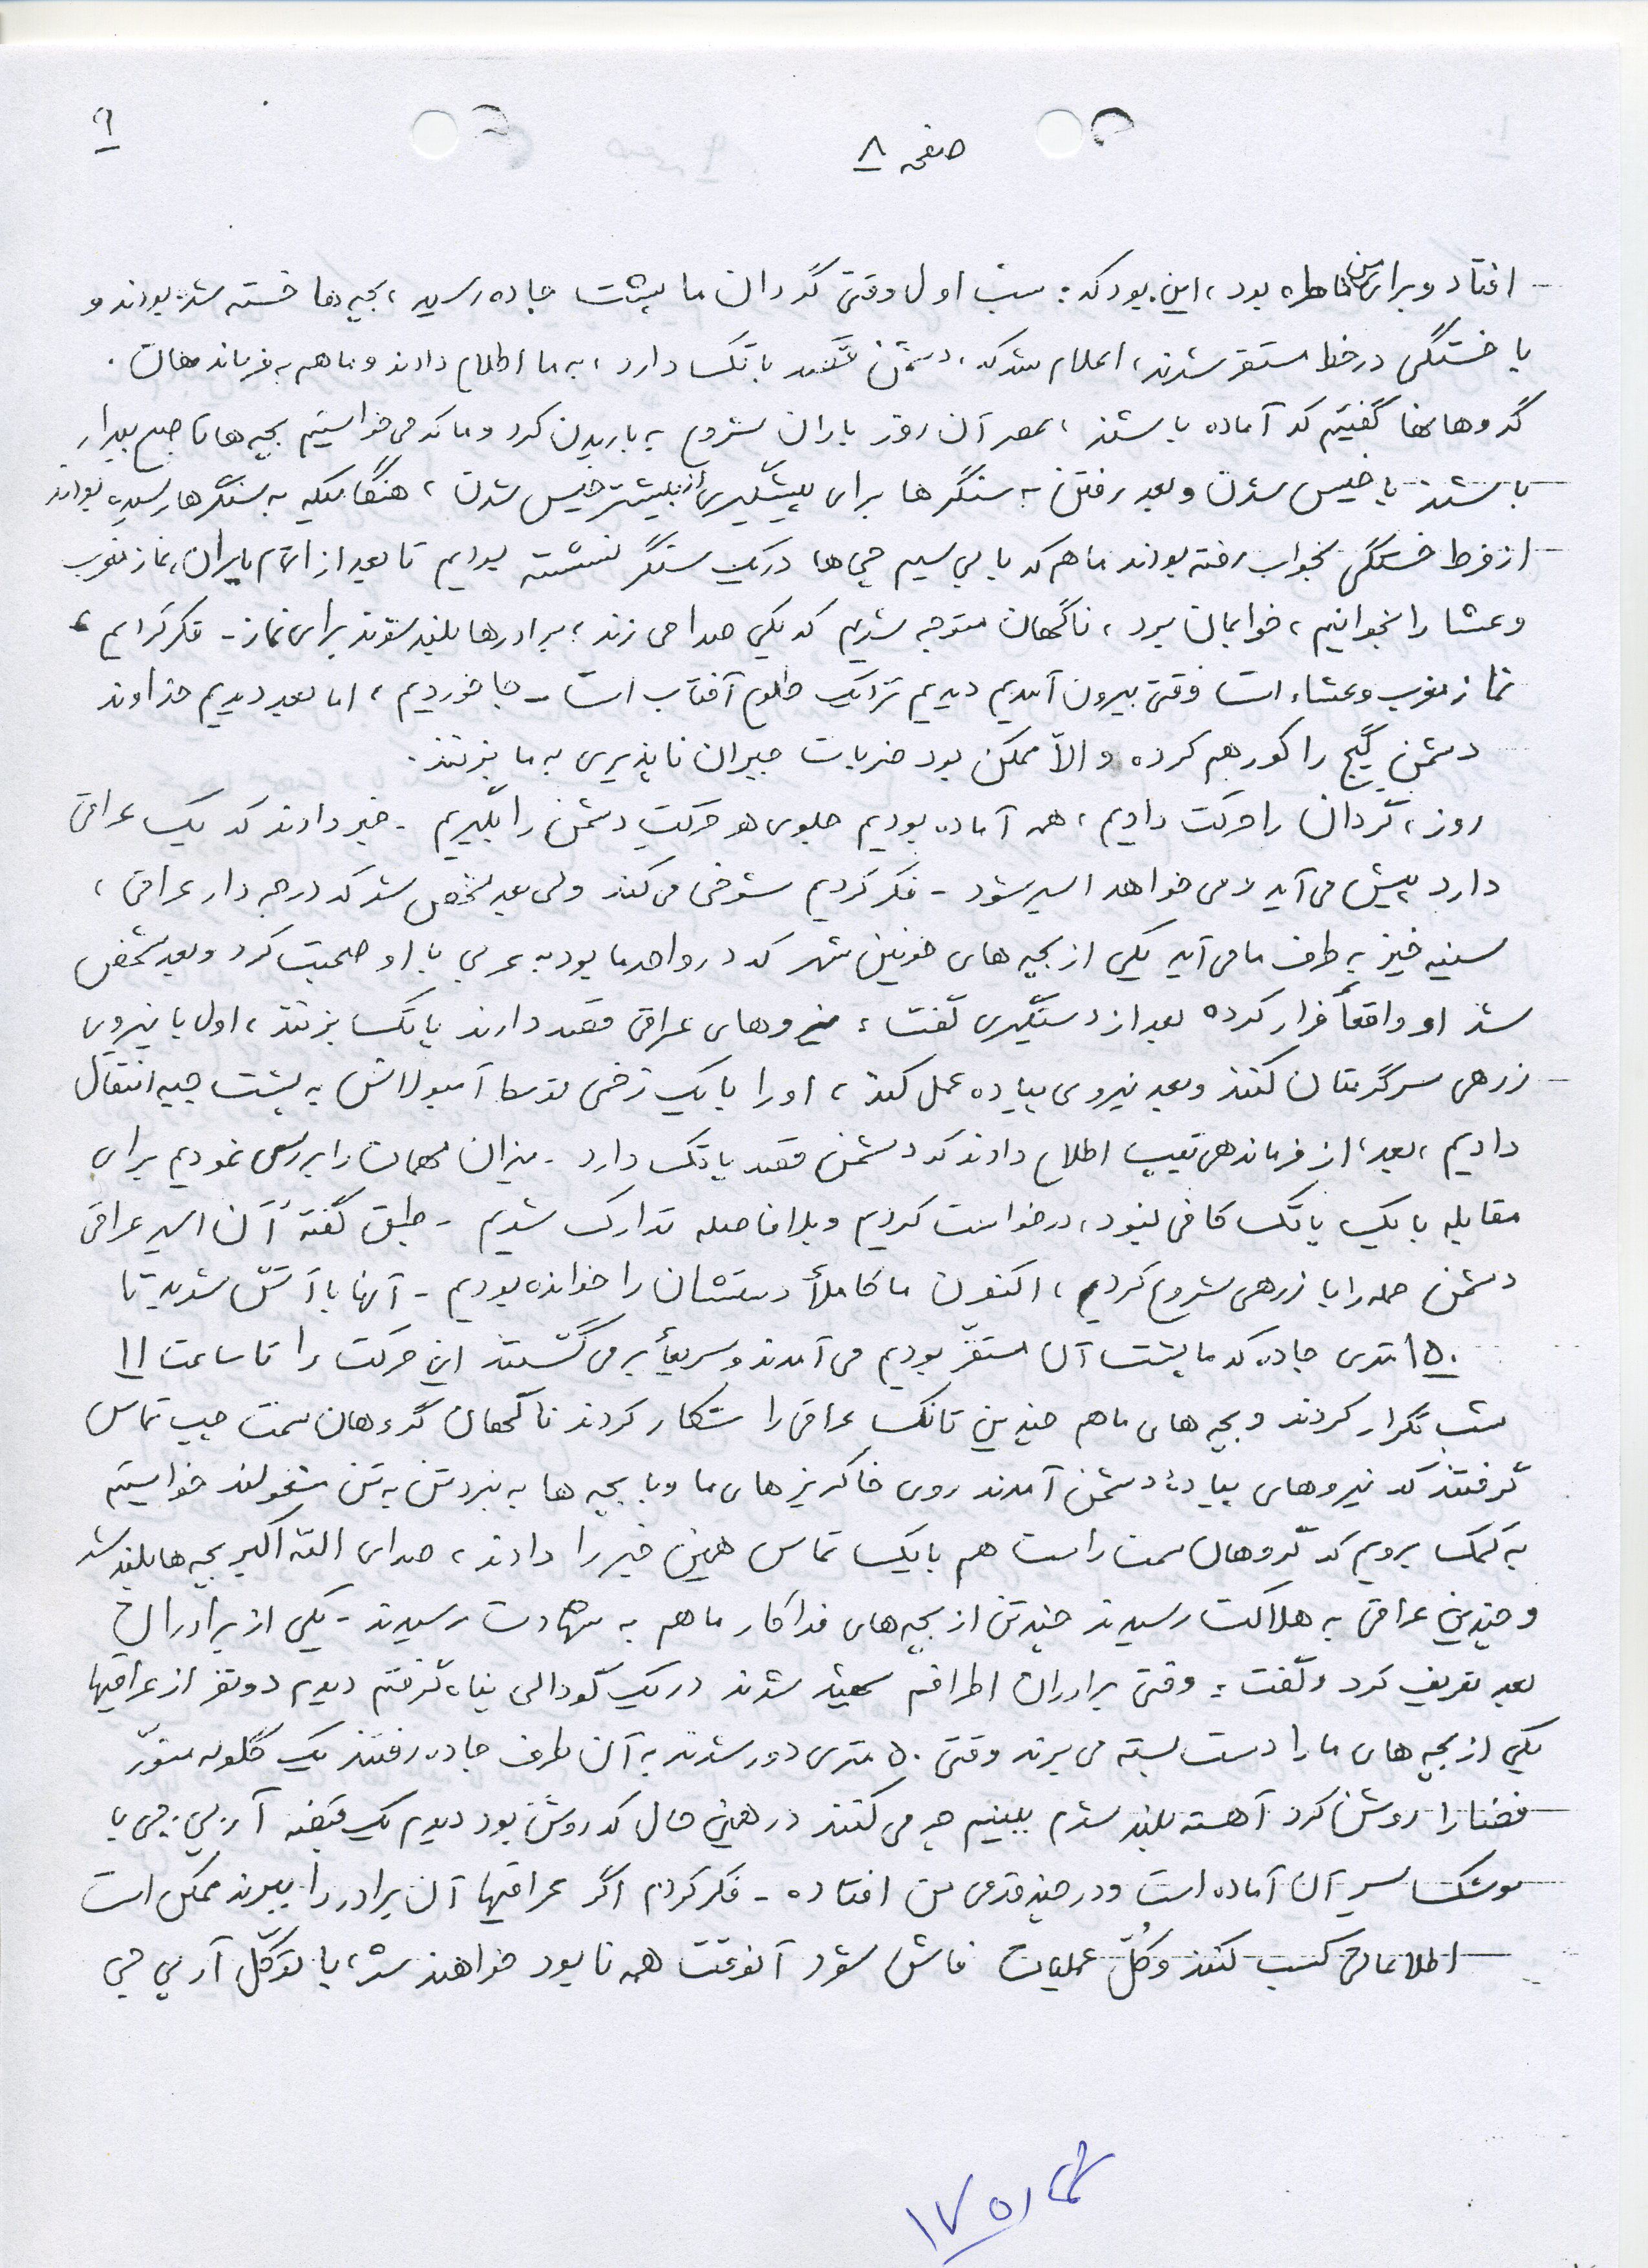 ۹
صفحه ۸
افتاد و برای من خاطره بود، این بود که: شب اول وقتی گردان ما پشت جاده رسید، بچه‌ها خسته شده بودند و
با خستگی در خط مستقر شدند، اعلام شد که، دشمن قصد پاتک دارد، به ما اطلاع دادند و ما هم به فرماندهان
گروهانها گفتیم که آماده باشند، عصر آن روز باران شروع به باریدن کرد و ما که می‌خواستیم بچه‌ها تا صبح بیدار
باشند با خیس شدن و بعد رفتن به سنگرها برای پیشگیری از بیشتر خیس شدن، هنگامیکه به سنگرها رسیده بودند
از فرط خستگی بخواب رفته بودند ما هم که با بی‌سیم چی‌ها در یک سنگر نشسته بودیم تا بعد از اتمام باران، نماز مغرب
و عشا را بخوانیم، خوابمان برد، ناگهان متوجه شدیم که یکی صدا می‌زند؛ برادرها بلند شوند برای نماز - فکر کردیم،
نماز مغرب و عشاء است وقتی بیرون آمدیم دیدیم نزدیک طلوع آفتاب است - جا خوردیم، اما بعد دیدیم خداوند
دشمن گیج را کور هم کرده و الاّ ممکن بود ضربات جبران ناپذیری به ما بزنند.
روز، گردان را حرکت دادیم، همه آماده بودیم جلوی هر حرکت دشمن را بگیریم - خبر دادند که یک عراقی
دارد پیش می‌آید و می‌خواهد اسیر شود - فکر کردیم شوخی می‌کنند ولی بعد مشخص شد که درجه دار عراقی،
سینه خیز به طرف ما می‌آید یکی از بچه‌های خونین شهر که در واحد ما بود به عربی با او صحبت کرد و بعد مشخص
شد او واقعاً فرار کرده بعد از دستگیری گفت: نیروهای عراقی قصد دارند پاتک بزنند، اول با نیروی
زرهی سرگرمتان کنند و بعد نیروی پیاده عمل کند، او را با یک زخمی توسط آمبولانس به پشت جبهه انتقال
دادیم، بعد، از فرماندهی تیپ اطلاع دادند که دشمن قصد پاتک دارد - میزان مهمات را بررسی نمودیم برای
مقابله با یک پاتک کافی نبود، درخواست کردیم و بلافاصله تدارک شدیم - طبق گفتهٔ آن اسیر عراقی
دشمن حمله را با زرهی شروع کرد، اکنون ما کاملاً دستشان را خوانده بودیم - آنها با آتش شدید تا
۱۵۰ متری جاده که ما پشت آن مستقر بودیم می‌آمدند و سریعاً برمی‌گشتند این حرکت را تا ساعت ۱۱
شب تکرار کردند و بچه‌های ما هم چندین تانک عراقی را شکار کردند ناگهان گروهان سمت چپ تماس
گرفتند که نیروهای پیادهٔ دشمن آمدند روی خاکریزهای ما و با بچه‌ها به نبرد تن به تن مشغولند خواستیم
به کمک برویم که گروهان سمت راست هم با یک تماس همین خبر را دادند، صدای الله اکبر بچه‌ها بلند شد
و چندین عراقی به هلاکت رسیدند چند تن از بچه‌های فداکار ما هم به شهادت رسیدند - یکی از برادران
بعد تعریف کرد و گفت: وقتی برادران اطرافم شهید شدند در یک گودالی پناه گرفتم دیدم دو نفر از عراقیها
یکی از بچه‌های ما را دست بسته می‌برند وقتی ۵۰ متری دور شدند به آن طرف جاده رفتند یک گلوله منوّر
فضا را روشن کرد آهسته بلند شدم ببینیم چه می‌کنند در همین حال که روشن بود دیدم یک قبضه آر.پی.جی با
موشک سر آن آماده است و در چند قدمی من افتاده - فکر کردم اگر عراقیها آن برادر را ببرند ممکن است
اطلاعاتی کسب کنند و کُلّ عملیات فاش شود آنوقت همه نابود خواهند شد، با توکّل آر پی جی
شماره ۱۷